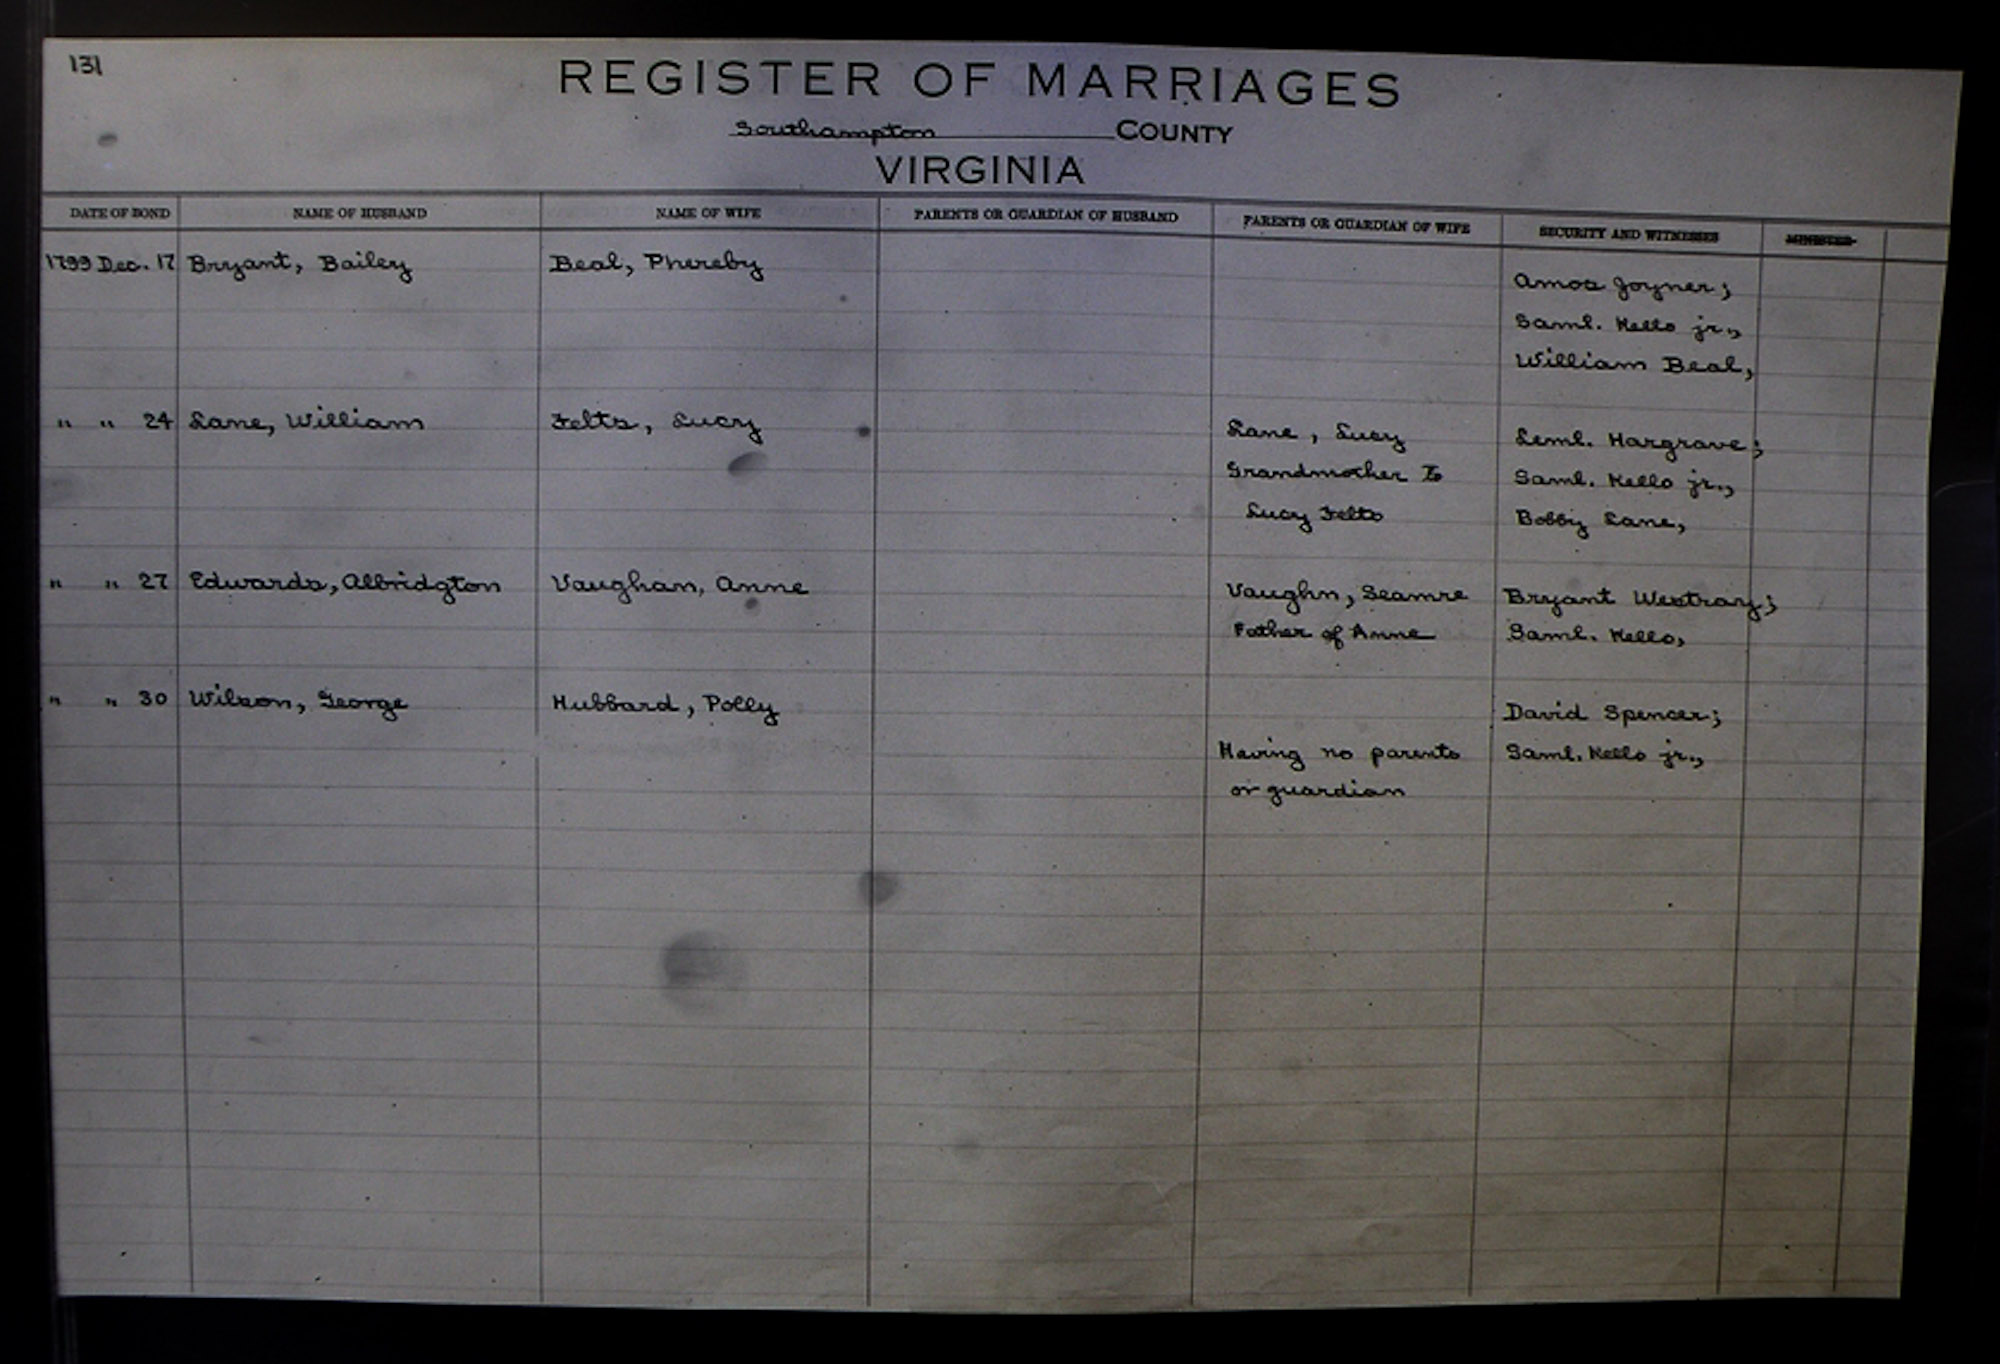 131
REGISTER OF MARRIAGES
Southampton COUNTY
VIRGINIA
DATE OF BOND NAME OF HUSBAND NAME OF WIFE PARENTS OR GUARDIAN OF HUSBAND PARENTS OR GUARDIAN OF WIFE SECURITY AND WITNESSES MINISTER
1799 Dec. 17 Bryant, Bailey Beal, Phereby
Amos Joyner;
Saml. Kello jr.,
William Beal,
" " 24 Lane, William Felts, Lucy Lane, Lucy Leml. Hargrave;
Grandmother To Saml. Kello jr.,
Lucy Felts Bobby Lane,
" " 27 Edwards, Albridgton Vaughan, Anne Vaughn, Seamre Bryant Westray;
Father of Anne Saml. Kello,
" " 30 Wilson, George Hubbard, Polly David Spencer;
Having no parents Saml. Kello jr.,
or guardian